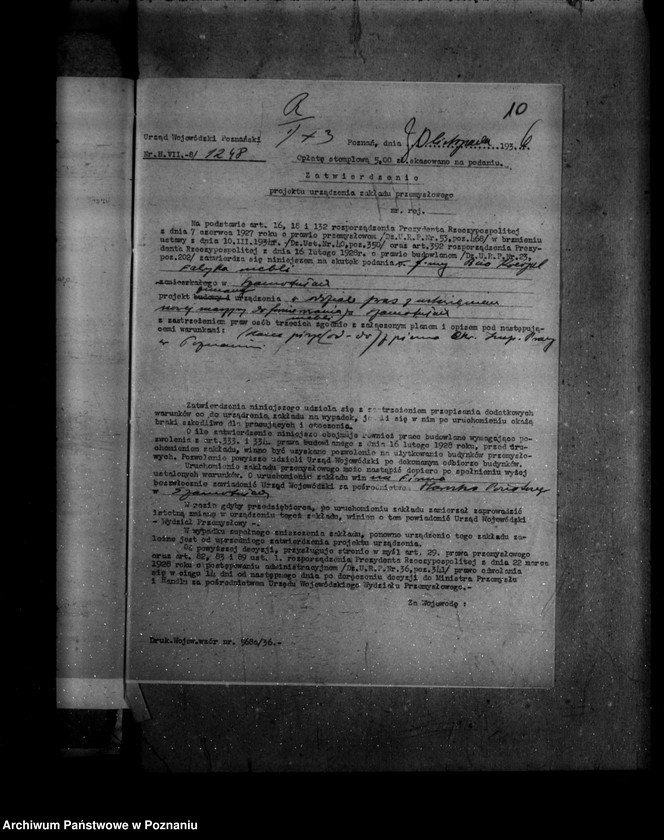 10
A
Urząd Wojewódzki Poznański
Poznań, dnia listopada 1936.
Nr.H.VII.-8/1248
Opłatę stemplową 5,00 zł. skasowano na podaniu.
Zatwierdzenie
projektu urządzenia zakładu przemysłowego
nr. rej.
Na podstawie art. 16, 18 i 132 rozporządzenia Prezydenta Rzeczypospolitej
z dnia 7 czerwca 1927 roku o prawie przemysłowem /Dz.U.R.P.Nr.53,poz.468/ w brzmieniu
ustawy z dnia 10.III.1934r. /Dz.Ust.Nr.40,poz.350/ oraz art.392 rozporządzenia Prezy-
denta Rzeczypospolitej z dnia 16 lutego 1928r. o prawie budowlanem /Dz.U.R.P.Nr.23,
poz.202/ zatwierdza się niniejszem na skutek podania firmy
Fabryka mebli
zamieszkałego w Szamotułach
projekt budowy i urządzenia
nowej maszyny do w Szamotułach
z zastrzeżeniem praw osób trzecich zgodnie z załączonym planem i opisem pod następują-
cemi warunkami:
w Poznaniu
Zatwierdzenia niniejszego udziela się z zastrzeżeniem przepisania dodatkowych
warunków co do urządzenia zakładu na wypadek, jeżeli się w nim po uruchomieniu okażą
braki szkodliwe dla pracujących i otoczenia.
O ile zatwierdzenie niniejsze obejmuje również prace budowlane wymagające po-
zwolenia z art.333. i 334. prawa budowlanego z dnia 16 lutego 1928 roku, przed uru-
chomieniem zakładu, winno być uzyskane pozwolenie na użytkowanie budynków przemysło-
wych. Pozwolenie powyższe udzieli Urząd Wojewódzki po dokonanym odbiorze budynków.
Uruchomienie zakładu przemysłowego może nastąpić dopiero po spełnieniu wyżej
ustalonych warunków. O uruchomieniu zakładu winna firma
bezzwłocznie zawiadomić Urząd Wojewódzki za pośrednictwem
w Szamotułach
W razie gdyby przedsiębiorca, po uruchomieniu zakładu zamierzał zaprowadzić
istotną zmianę w urządzeniu tegoż zakładu, winien o tem powiadomić Urząd Wojewódzki
- Wydział Przemysłowy -.
W wypadku zupełnego zniszczenia zakładu, ponowne urządzenie tego zakładu za-
leżne jest od uprzedniego zatwierdzenia projektu urządzenia.
Od powyższej decyzji, przysługuje stronie w myśl art. 29. prawa przemysłowego
oraz art. 82, 83 i 89 ust. 1. rozporządzenia Prezydenta Rzeczypospolitej z dnia 22 marca
1928 roku o postępowaniu administracyjnem /Dz.U.R.P.Nr.36,poz.341/ prawo odwołania
się w ciągu 14 dni od następnego dnia po doręczeniu decyzji do Ministra Przemysłu
i Handlu za pośrednictwem Urzędu Wojewódzkiego Wydziału Przemysłowego.-
Za Wojewodę :
Druk.Wojew.wzór nr. 568a/36.-
Archiwum Państwowe w Poznaniu